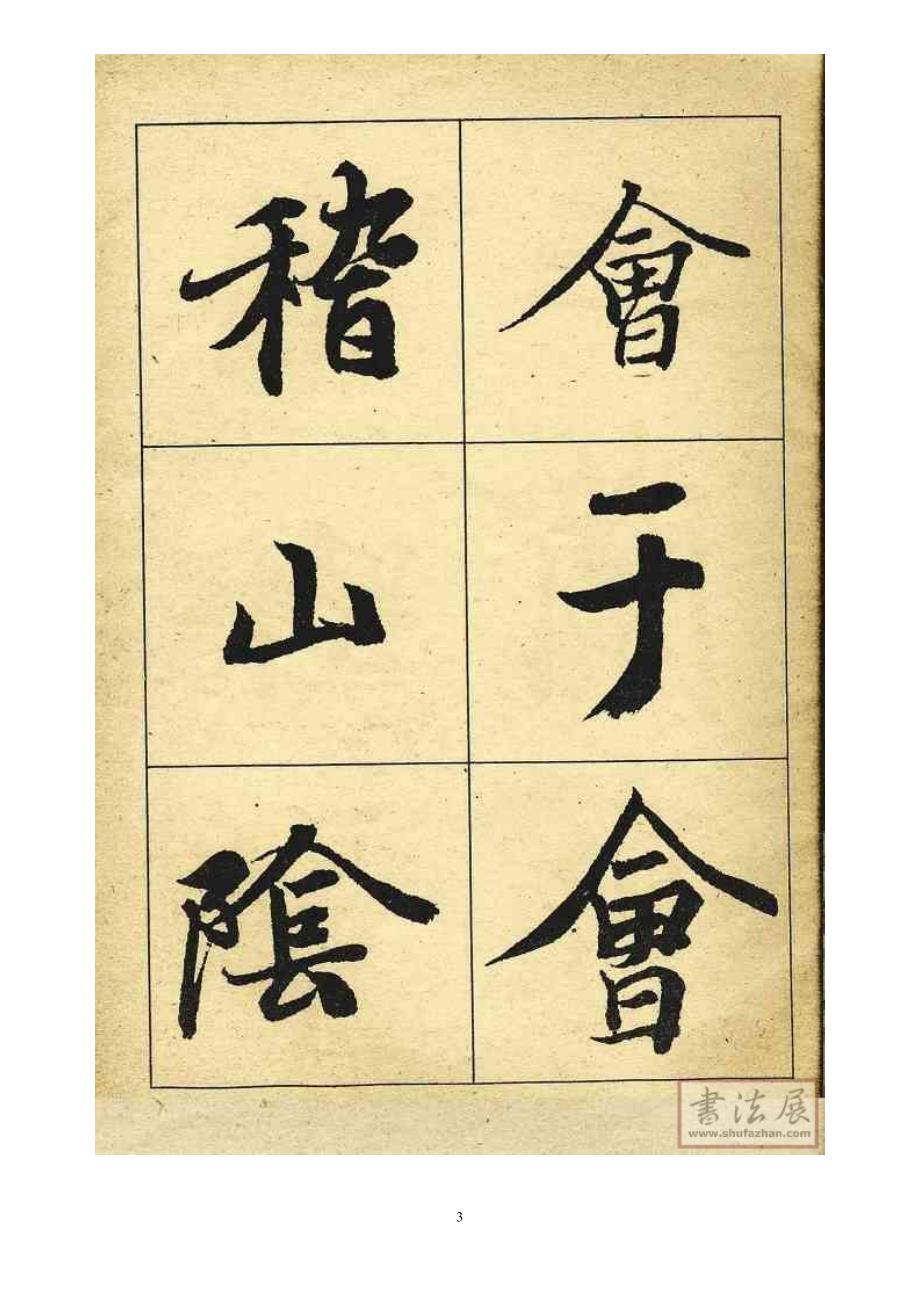 會于會
稽山陰
書法展
www.shufazhan.com
3